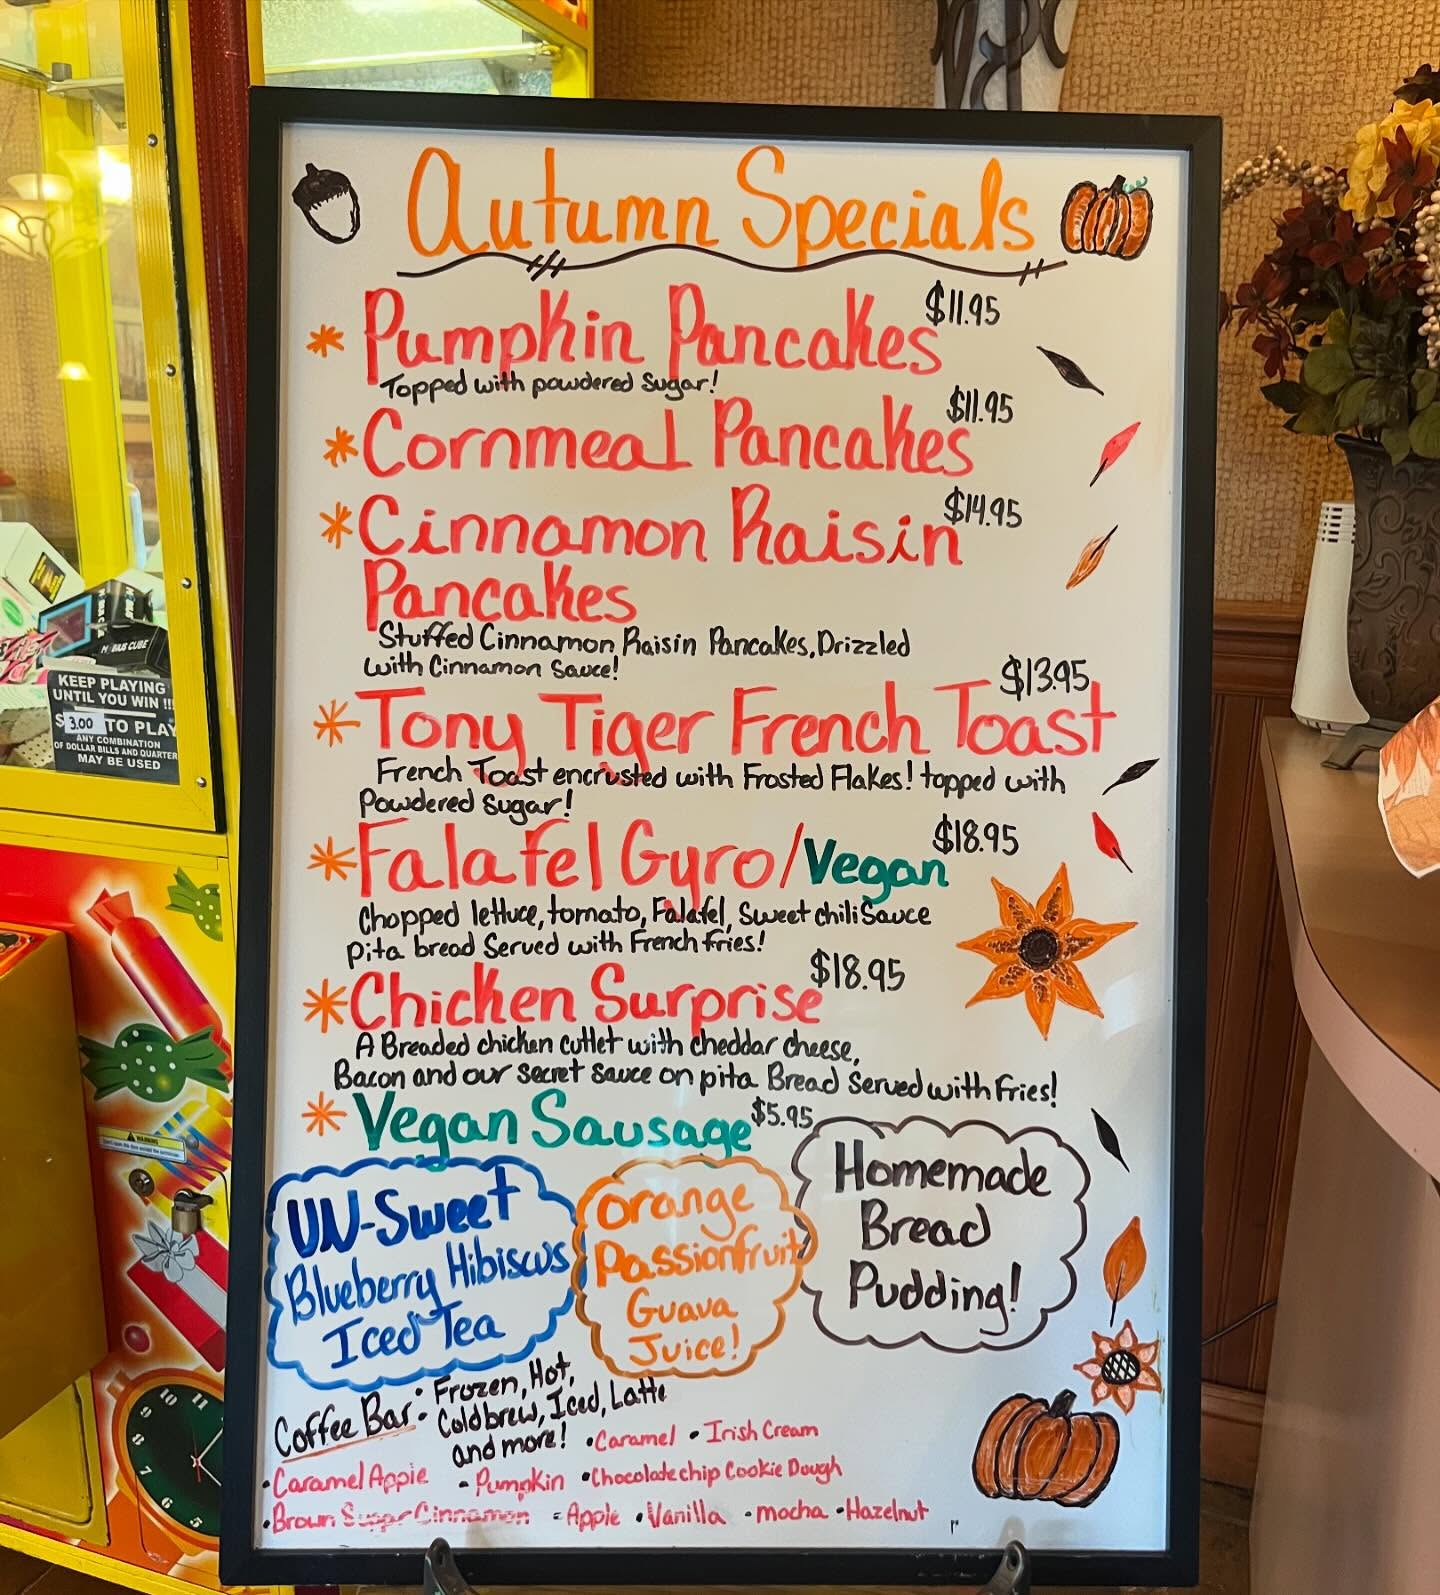 Autumn Specials
* Pumpkin Pancakes $11.95
Topped with powdered Sugar!
* Cornmeal Pancakes $11.95
* Cinnamon Raisin $14.95
Pancakes
Stuffed Cinnamon Raisin Pancakes, Drizzled
with Cinnamon Sauce!
* Tony Tiger French Toast $13.95
French Toast encrusted with Frosted Flakes! topped with
Powdered Sugar!
* Falafel Gyro/Vegan $18.95
Chopped lettuce, tomato, Falafel, Sweet chili Sauce
pita bread Served with French fries!
* Chicken Surprise $18.95
A Breaded chicken cutlet with cheddar cheese,
Bacon and our secret sauce on pita Bread Served with Fries!
* Vegan Sausage $5.95
UN-Sweet
Blueberry Hibiscus
Iced Tea
Orange
Passionfruit
Guava
Juice!
Homemade
Bread
Pudding!
Coffee Bar: Frozen, Hot,
Coldbrew, Iced, Latte
and more! • Caramel • Irish Cream
• Caramel Apple • Pumpkin • Chocolate chip Cookie Dough
• Brown Sugar Cinnamon • Apple • Vanilla • mocha • Hazelnut
MOBIUS CUBE
KEEP PLAYING
UNTIL YOU WIN !!!
$3.00 TO PLAY
ANY COMBINATION
OF DOLLAR BILLS AND QUARTERS
MAY BE USED
WARNING
11
10
9
8
7
6
5